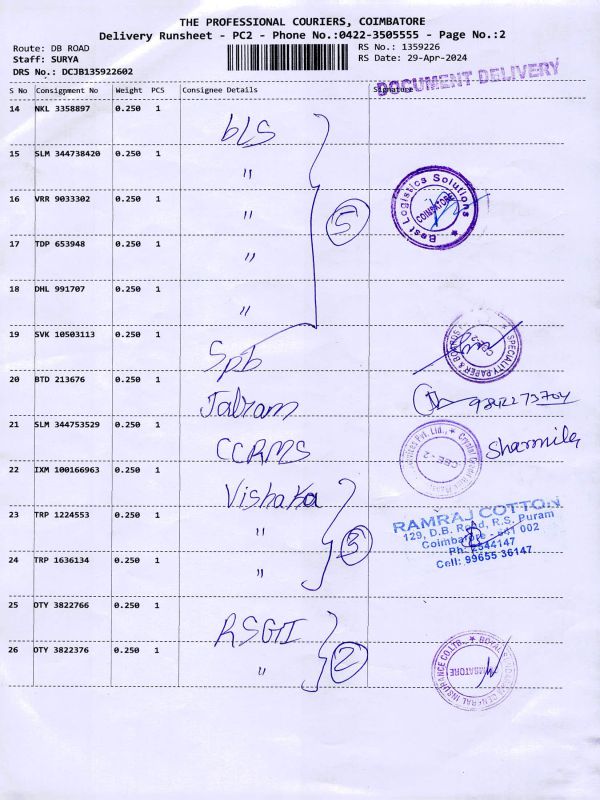 THE PROFESSIONAL COURIERS, COIMBATORE
Delivery Runsheet - PC2 - Phone No.:0422-3505555 - Page No.:2
Route: DB ROAD
RS No.: 1359226
Staff: SURYA
RS Date: 29-Apr-2024
DRS No.: DCJB135922602
DOCUMENT DELIVERY
S No Consignment No Weight PCS Consignee Details Signature
14 NKL 3358897 0.250 1 bLS
15 SLM 344738420 0.250 1 "
16 VRR 9033302 0.250 1 "
17 TDP 653948 0.250 1 "
18 DHL 991707 0.250 1 "
5
Best Logistics Solutions
COIMBATORE
19 SVK 10503113 0.250 1 Spb
SPECIALITY PAPER & BOARDS
20 BTD 213676 0.250 1 Jalram 9842273704
21 SLM 344753529 0.250 1 CCRMS Sharmila
Services Pvt. Ltd.,
CBE-2
22 IXM 100166963 0.250 1 Vishaka
23 TRP 1224553 0.250 1 "
24 TRP 1636134 0.250 1 "
3
RAMRAJ COTTON
129, D.B. Road, R.S. Puram
Coimbatore - 641 002
Ph: 2544147
Cell: 99655 36147
25 DTY 3822766 0.250 1 RSGI
26 DTY 3822376 0.250 1 "
2
GENERAL INSURANCE CO.LTD.,